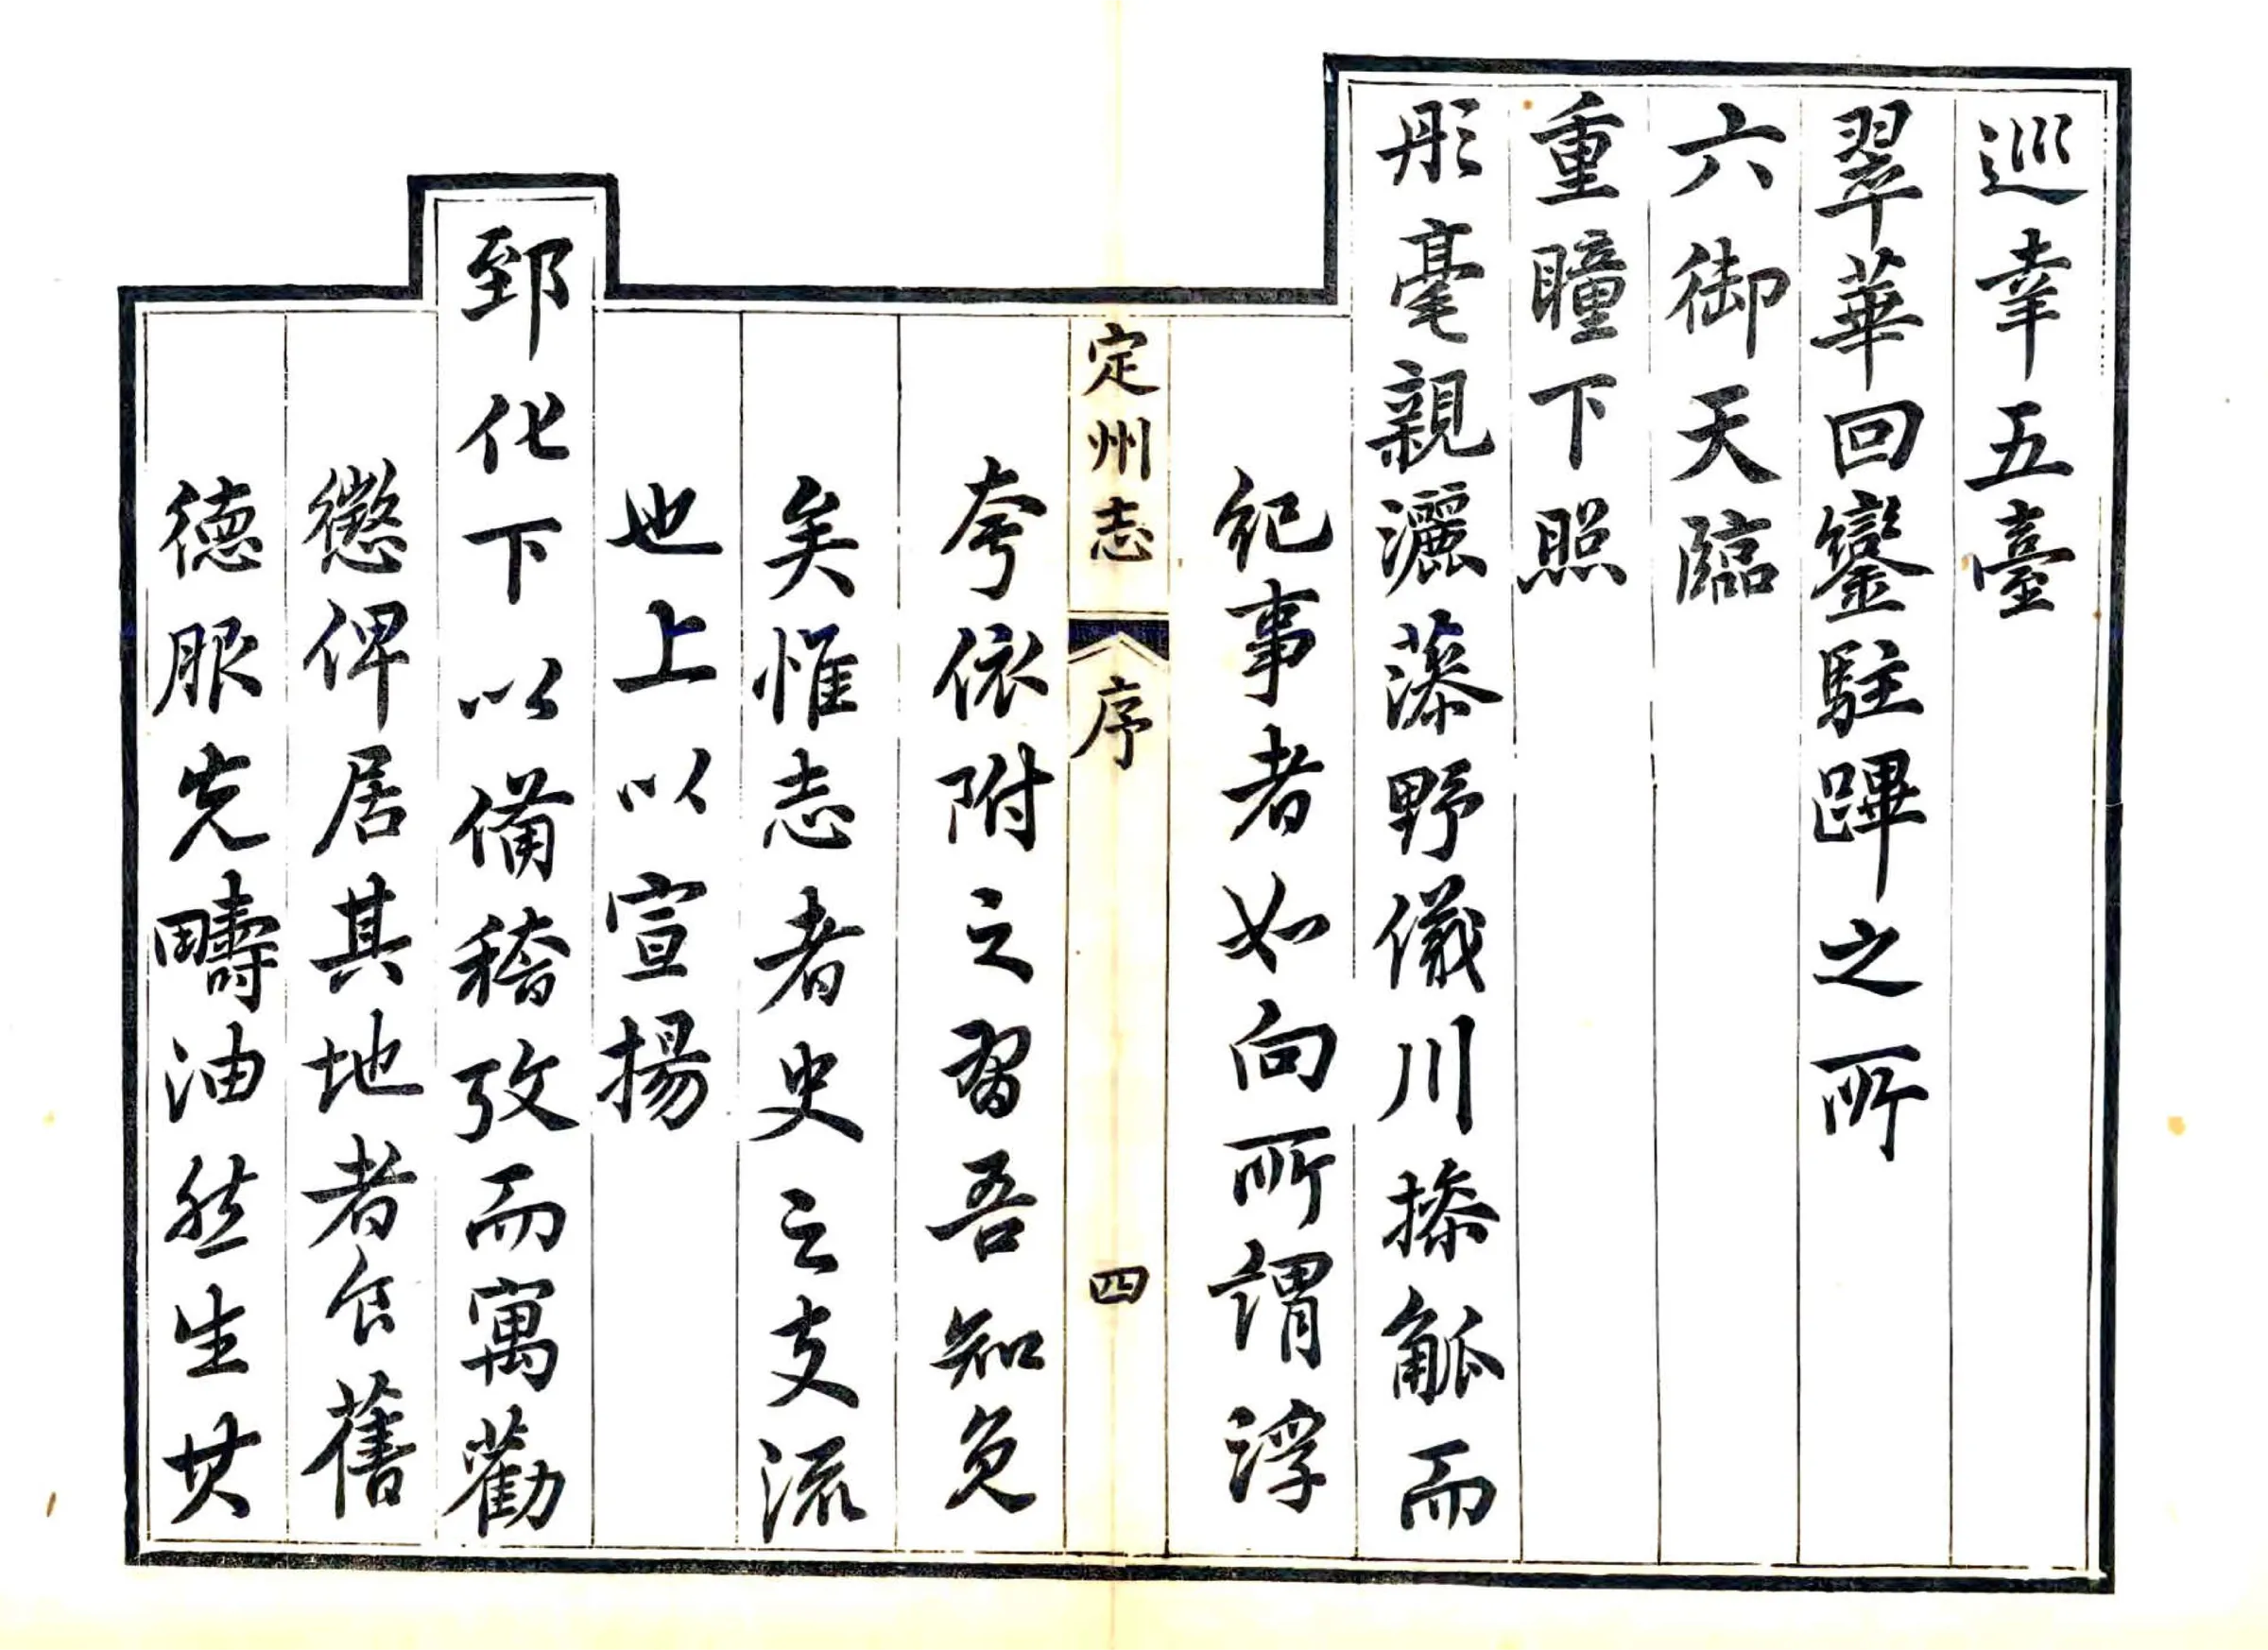 巡幸五臺
翠華回鑾駐蹕之所
六御天臨
重瞳下照
彤毫親灑藻野儀川搽觚而
紀事者如向所謂浮
定州志
序
四
夸依附之習吾知免
矣惟志者史之支流
也上以宣揚
郅化下以備稽攷而寓勸
懲俾居其地者食舊
德服先疇油然生其